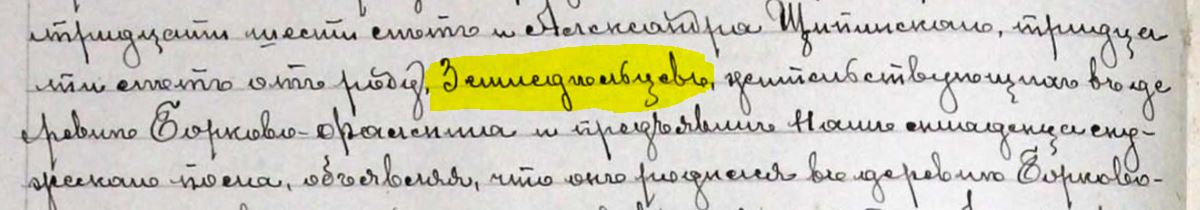 тридцати шести лѣтъ и Александра Щипинскаго, тридца
ти лѣтъ отъ роду, Земледѣльцевъ, жительствующихъ въ де
ревнѣ Борково- и предъявилъ Намъ младенца му-
жескаго пола, объявляя, что онъ родился въ деревнѣ Борково-